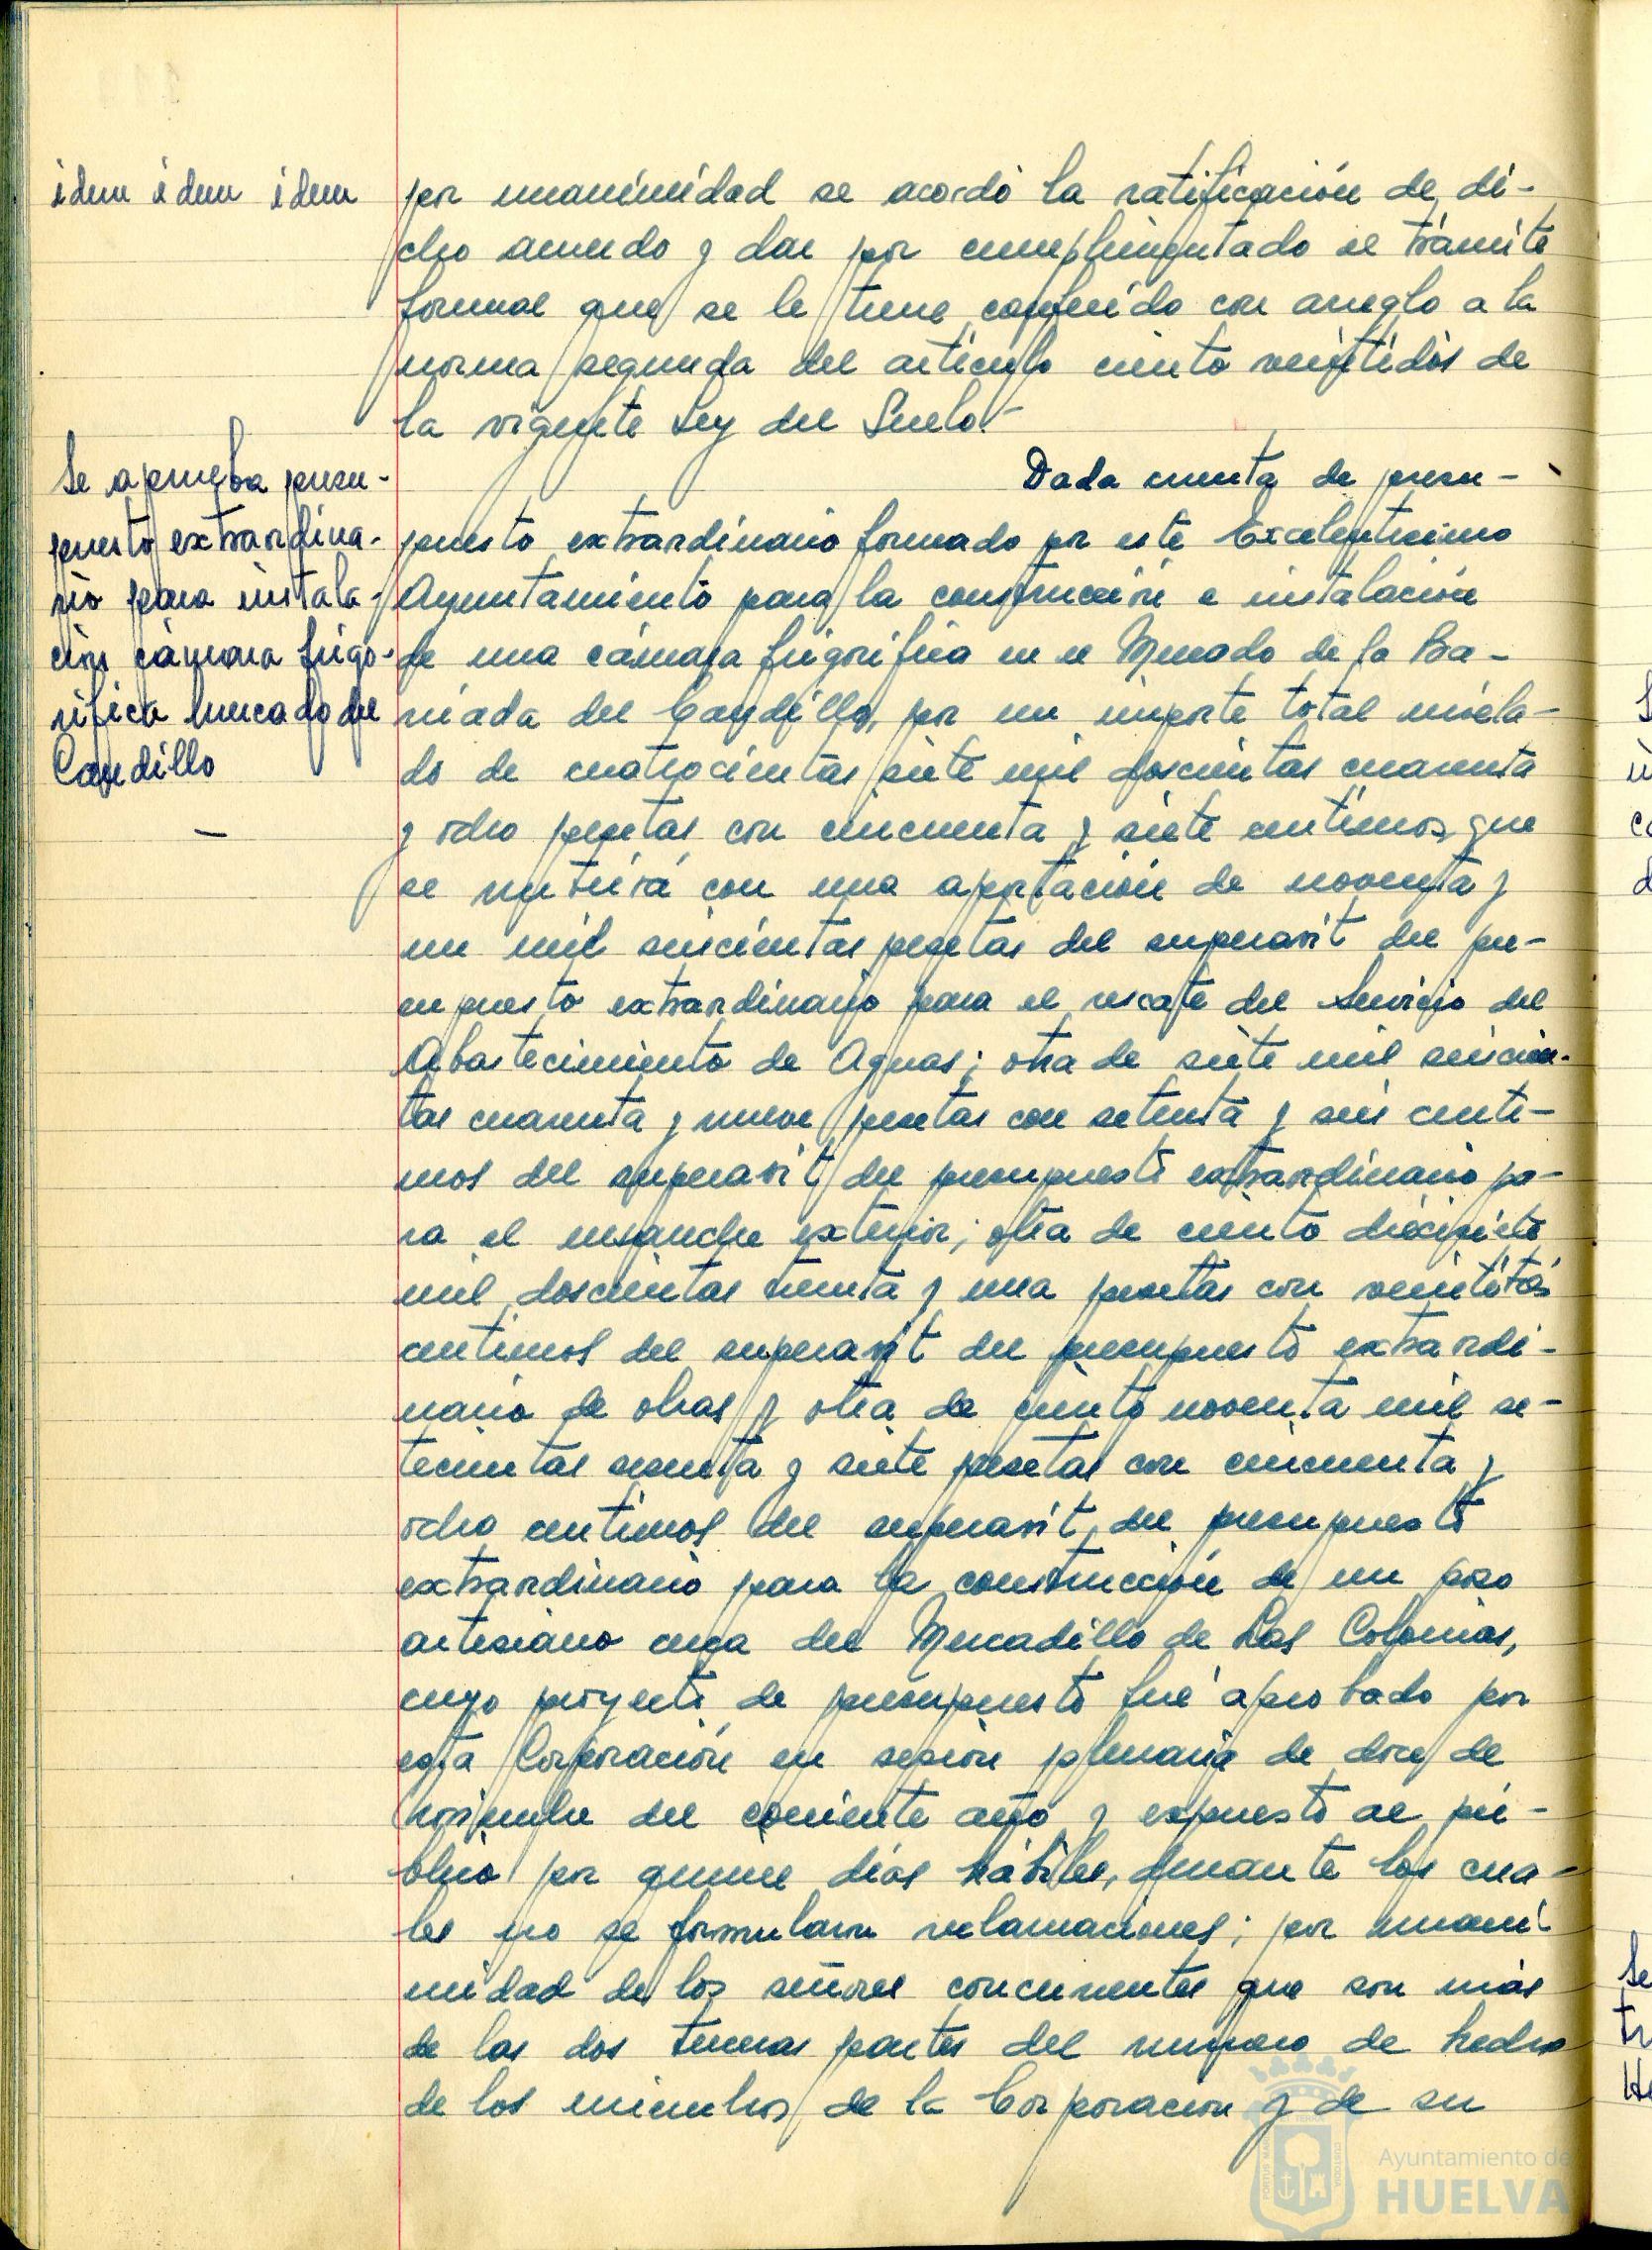 idem idem idem
por unanimidad se acordó la ratificación de di-
cho acuerdo y dar por cumplimentado el trámite
formal que se le tiene conferido con arreglo a la
norma segunda del artículo ciento veintidós de
la vigente Ley del Suelo.-
Se aprueba presu-
puesto extraordina-
rio para instala-
ción cámara frigo-
rífica mercado del
Caudillo
Dada cuenta de presu-
puesto extraordinario formado por este Excelentísimo
Ayuntamiento para la construcción e instalación
de una cámara frigorífica en el Mercado de la Ba-
rriada del Caudillo, por un importe total nivela-
do de cuatrocientas siete mil doscientas cuarenta
y ocho pesetas con cincuenta y siete centimos, que
se nutrirá con una aportación de noventa y
un mil seiscientas pesetas del superavit del pre-
supuesto extraordinario para el rescate del Servicio del
Abastecimiento de Aguas; otra de siete mil seiscien-
tas cuarenta y nueve pesetas con setenta y seis centi-
mos del superavit del presupuesto extraordinario pa-
ra el ensanche exterior; otra de ciento diecisiete
mil doscientas treinta y una pesetas con veintitrés
centimos del superavit del presupuesto extraordi-
nario de obras y otra de ciento noventa mil se-
tecientas sesenta y siete pesetas con cincuenta y
ocho centimos del superavit del presupuesto
extraordinario para la construcción de un pozo
artesiano cerca del Mercadillo de Las Colonias,
cuyo proyecto de presupuesto fué aprobado por
esta Corporación en sesión plenaria de doce de
Noviembre del corriente año y expuesto al pú-
blico por quince días hábiles, durante los cua-
les no se formularon reclamaciones; por unani-
midad de los señores concurrentes que son más
de las dos terceras partes del número de hecho
de los miembros de la Corporación y de su
Ayuntamiento de
HUELVA